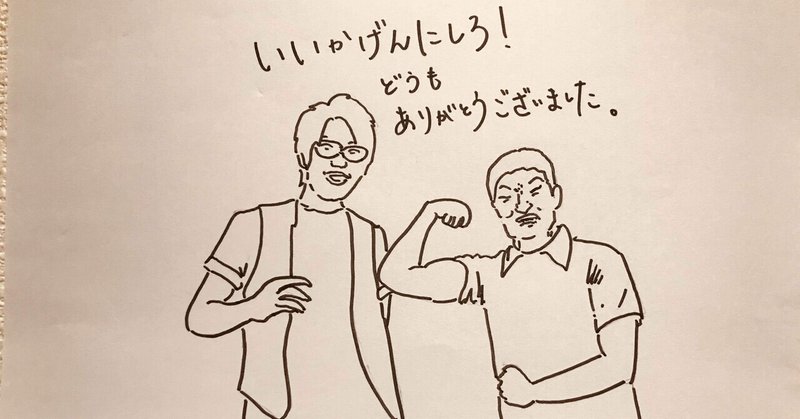 いいかげんにしろ!
どうも
ありがとうございました。